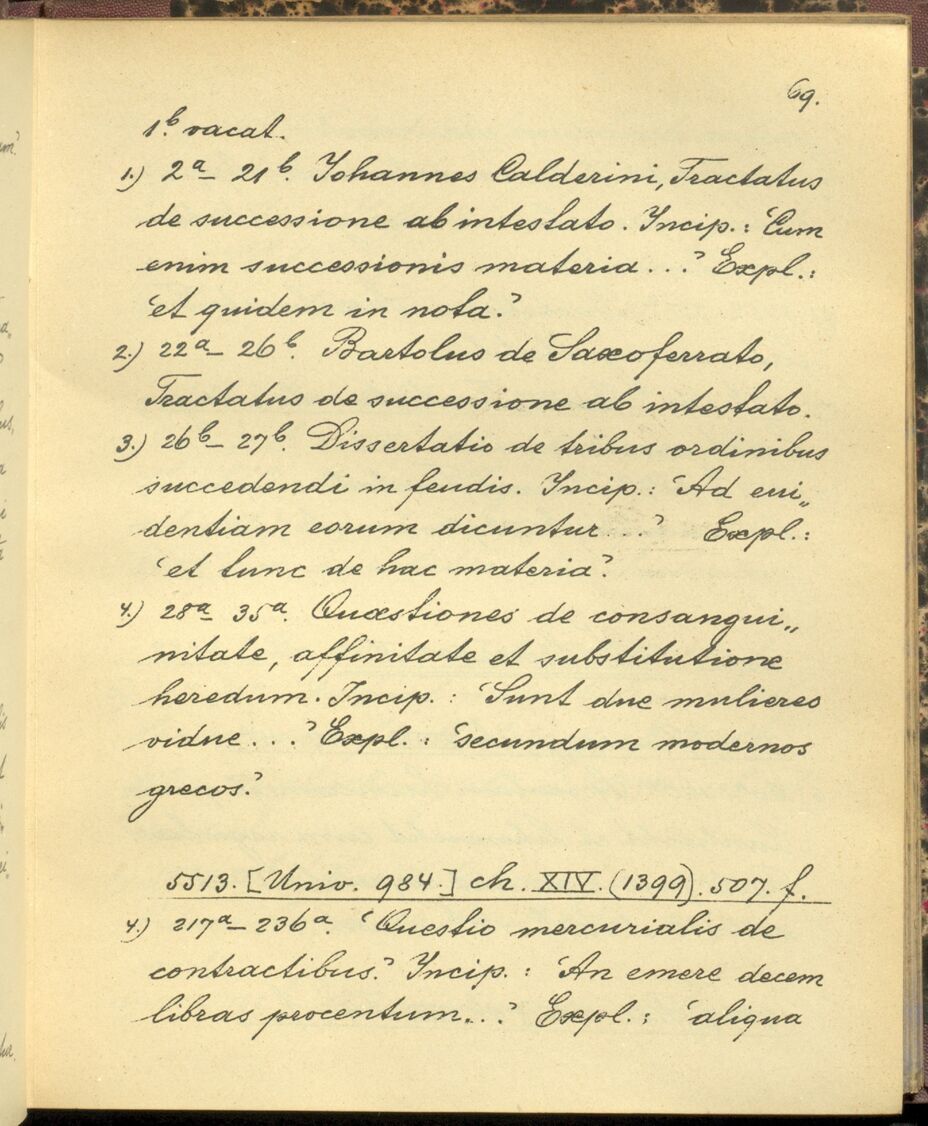 69.
1.b vacat.
1.) 2a– 21b. Johannes Calderini, Tractatus
de successione ab intestato. Incip.: 'Cum
enim successionis materia...' Expl.:
'et quidem in nota.'
2.) 22a– 26b. Bartolus de Saxoferrato,
Tractatus de successione ab intestato.
3.) 26b– 27b. Dissertatio de tribus ordinibus
succedendi in feudis. Incip.: 'Ad eui„
dentiam eorum dicuntur...' Expl.:
'et tunc de hac materia'.
4.) 28a– 35a. Quaestiones de consangui„
nitate, affinitate et substitutione
heredum. Incip.: 'Sunt due mulieres
vidue...' Expl.: 'secundum modernos
grecos.'
5513. [Univ. 984.] ch. XIV. (1399). 507. f.
4.) 217a– 236a. 'Questio mercurialis de
contractibus.' Incip.: 'An emere decem
libras procentum...' Expl.: 'aliqua